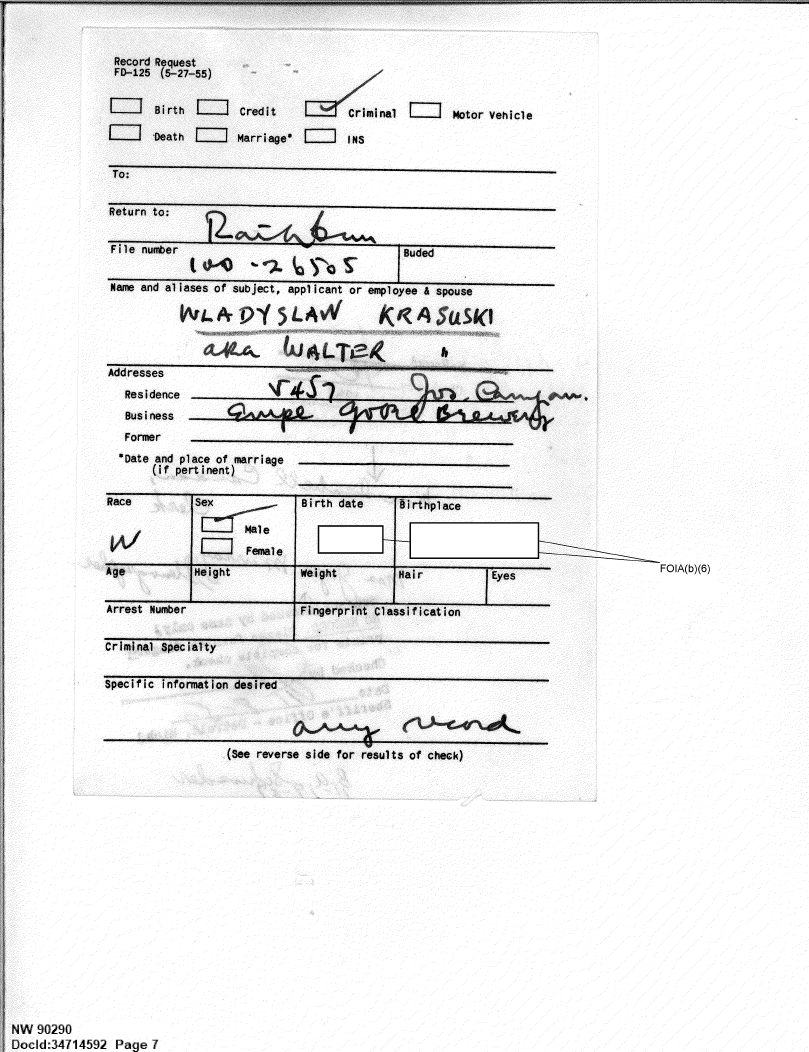 Record Request
FD-125 (5-27-55)
Birth Credit Criminal Motor Vehicle
Death Marriage* INS
To:
Return to: Rathbun
File number 100-26505 Buded
Name and aliases of subject, applicant or employee & spouse
WLADYSLAW KRASUSKI
aka WALTER "
Addresses
Residence 5457 Jos. Campau.
Business Brewery
Former
*Date and place of marriage
(if pertinent)
Race Sex Birth date Birthplace
W Male
Female
FOIA(b)(6)
Age Height Weight Hair Eyes
Arrest Number Fingerprint Classification
Criminal Specialty
Specific information desired
any record
(See reverse side for results of check)
NW 90290
DocId:34714592 Page 7